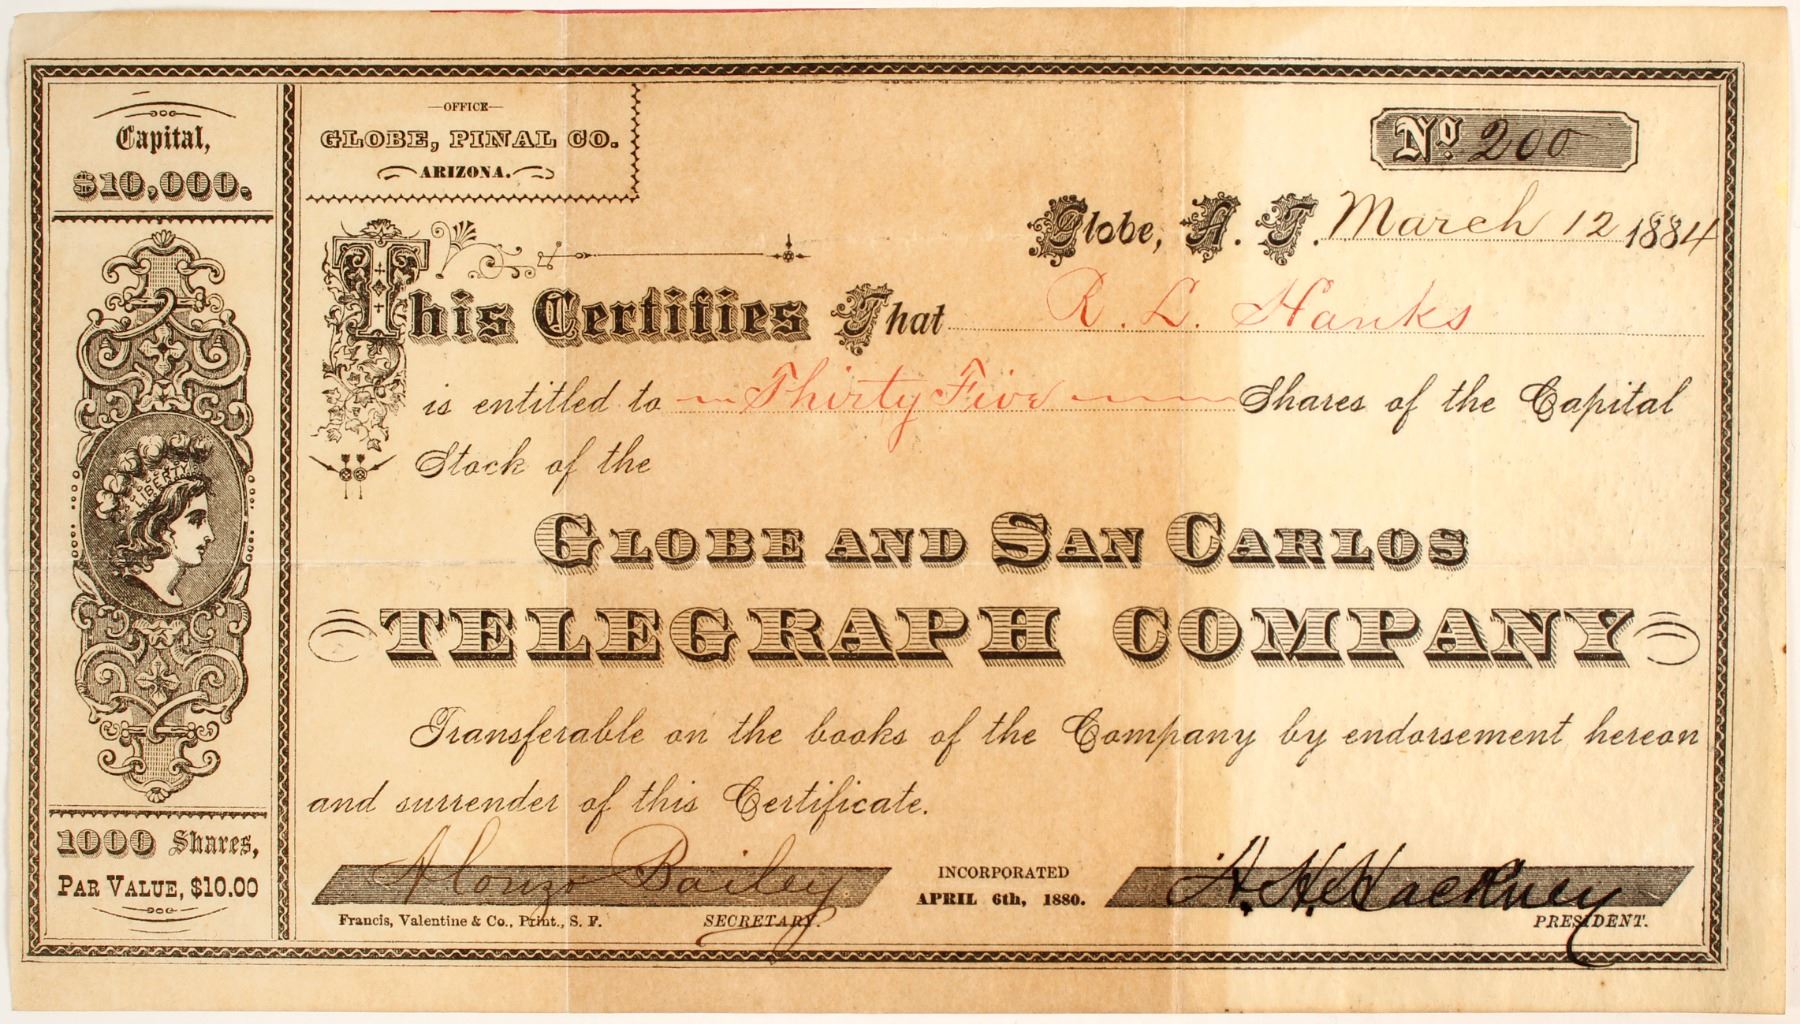 Capital,
$10,000.
OFFICE
GLOBE, PINAL CO.
ARIZONA.
No. 200
Globe, A. T. March 12 1884
This Certifies That R. L. Hanks
is entitled to Thirty Five Shares of the Capital
Stock of the
GLOBE AND SAN CARLOS
TELEGRAPH COMPANY
Transferable on the books of the Company by endorsement hereon
and surrender of this Certificate.
LIBERTY
1000 Shares,
PAR VALUE, $10.00
Alonzo Bailey
INCORPORATED
APRIL 6th, 1880.
H. H. Hackney
Francis, Valentine & Co., Print., S. F.
SECRETARY.
PRESIDENT.